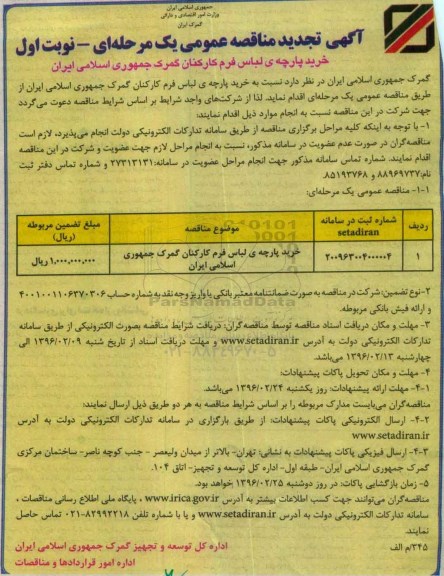 جمهوری اسلامی ایران
وزارت امور اقتصادی و دارائی
گمرک ایران
آگهی تجدید مناقصه عمومی یک مرحله‌ای – نوبت اول
خرید پارچه ی لباس فرم کارکنان گمرک جمهوری اسلامی ایران
گمرک جمهوری اسلامی ایران در نظر دارد نسبت به خرید پارچه ی لباس فرم کارکنان گمرک جمهوری اسلامی ایران از
طریق مناقصه عمومی یک مرحله‌ای اقدام نماید. لذا از شرکت‌های واجد شرایط بر اساس شرایط مناقصه دعوت می‌گردد
جهت شرکت در این مناقصه نسبت به انجام موارد ذیل اقدام نمایند:
۱- با توجه به اینکه کلیه مراحل برگزاری مناقصه از طریق سامانه تدارکات الکترونیکی دولت انجام می‌پذیرد، لازم است
مناقصه‌گران در صورت عدم عضویت در سامانه مذکور، نسبت به انجام مراحل لازم جهت عضویت و شرکت در این مناقصه
اقدام نمایند. شماره تماس سامانه مذکور جهت انجام مراحل عضویت در سامانه: ۲۷۳۱۳۱۳۱ و شماره تماس دفتر ثبت
نام: ۸۸۹۶۹۷۳۷ و ۸۵۱۹۳۷۶۸.
۱-۱- مناقصه عمومی یک مرحله‌ای:
ردیف شماره ثبت در سامانه setadiran موضوع مناقصه مبلغ تضمین مربوطه (ریال)
۱ ۲۰۰۹۶۳۰۰۴۰۰۰۰۰۴ خرید پارچه ی لباس فرم کارکنان گمرک جمهوری اسلامی ایران ۱,۰۰۰,۰۰۰,۰۰۰ ریال
ParsNamadData
۰۲۱-۸۸۳۴۹۶۷۰-۵
۲-نوع تضمین: شرکت در مناقصه به صورت ضمانتنامه معتبر بانکی یا واریز وجه نقد به شماره حساب ۴۰۰۱۰۰۱۱۰۶۳۷۰۳۰۶
و ارائه فیش بانکی مربوطه.
۳- مهلت و مکان دریافت اسناد مناقصه توسط مناقصه‌گران: دریافت شرایط مناقصه بصورت الکترونیکی از طریق سامانه
تدارکات الکترونیکی دولت به آدرس www.setadiran.ir و مهلت دریافت اسناد از تاریخ شنبه ۱۳۹۶/۰۲/۰۹ الی
چهارشنبه ۱۳۹۶/۰۲/۱۳ می‌باشد.
۴- مهلت و مکان تحویل پاکات پیشنهادات:
۴-۱- مهلت ارائه پیشنهادات: روز یکشنبه ۱۳۹۶/۰۲/۲۴ می‌باشد.
مناقصه‌گران می‌بایست مدارک مربوطه را بر اساس شرایط مناقصه به هر دو طریق ذیل ارسال نمایند:
۴-۲- ارسال الکترونیکی پاکات پیشنهادات: از طریق بارگزاری در سامانه تدارکات الکترونیکی دولت به آدرس
www.setadiran.ir
۴-۳- ارسال فیزیکی پاکات پیشنهادات به نشانی: تهران- بالاتر از میدان ولیعصر - جنب کوچه ناصر- ساختمان مرکزی
گمرک جمهوری اسلامی ایران- طبقه اول- اداره کل توسعه و تجهیز- اتاق ۱۰۴.
۵- زمان بازگشایی پاکات: در روز دوشنبه ۱۳۹۶/۰۲/۲۵ خواهد بود.
مناقصه‌گران می‌توانند جهت کسب اطلاعات بیشتر به آدرس www.irica.gov.ir ، پایگاه ملی اطلاع رسانی مناقصات ،
سامانه تدارکات الکترونیکی دولت به آدرس www.setadiran.ir و یا با شماره تلفن ۸۲۹۹۲۲۱۸-۰۲۱ تماس حاصل
نمایند.
۲۴۵/م الف
اداره کل توسعه و تجهیز گمرک جمهوری اسلامی ایران
اداره امور قراردادها و مناقصات